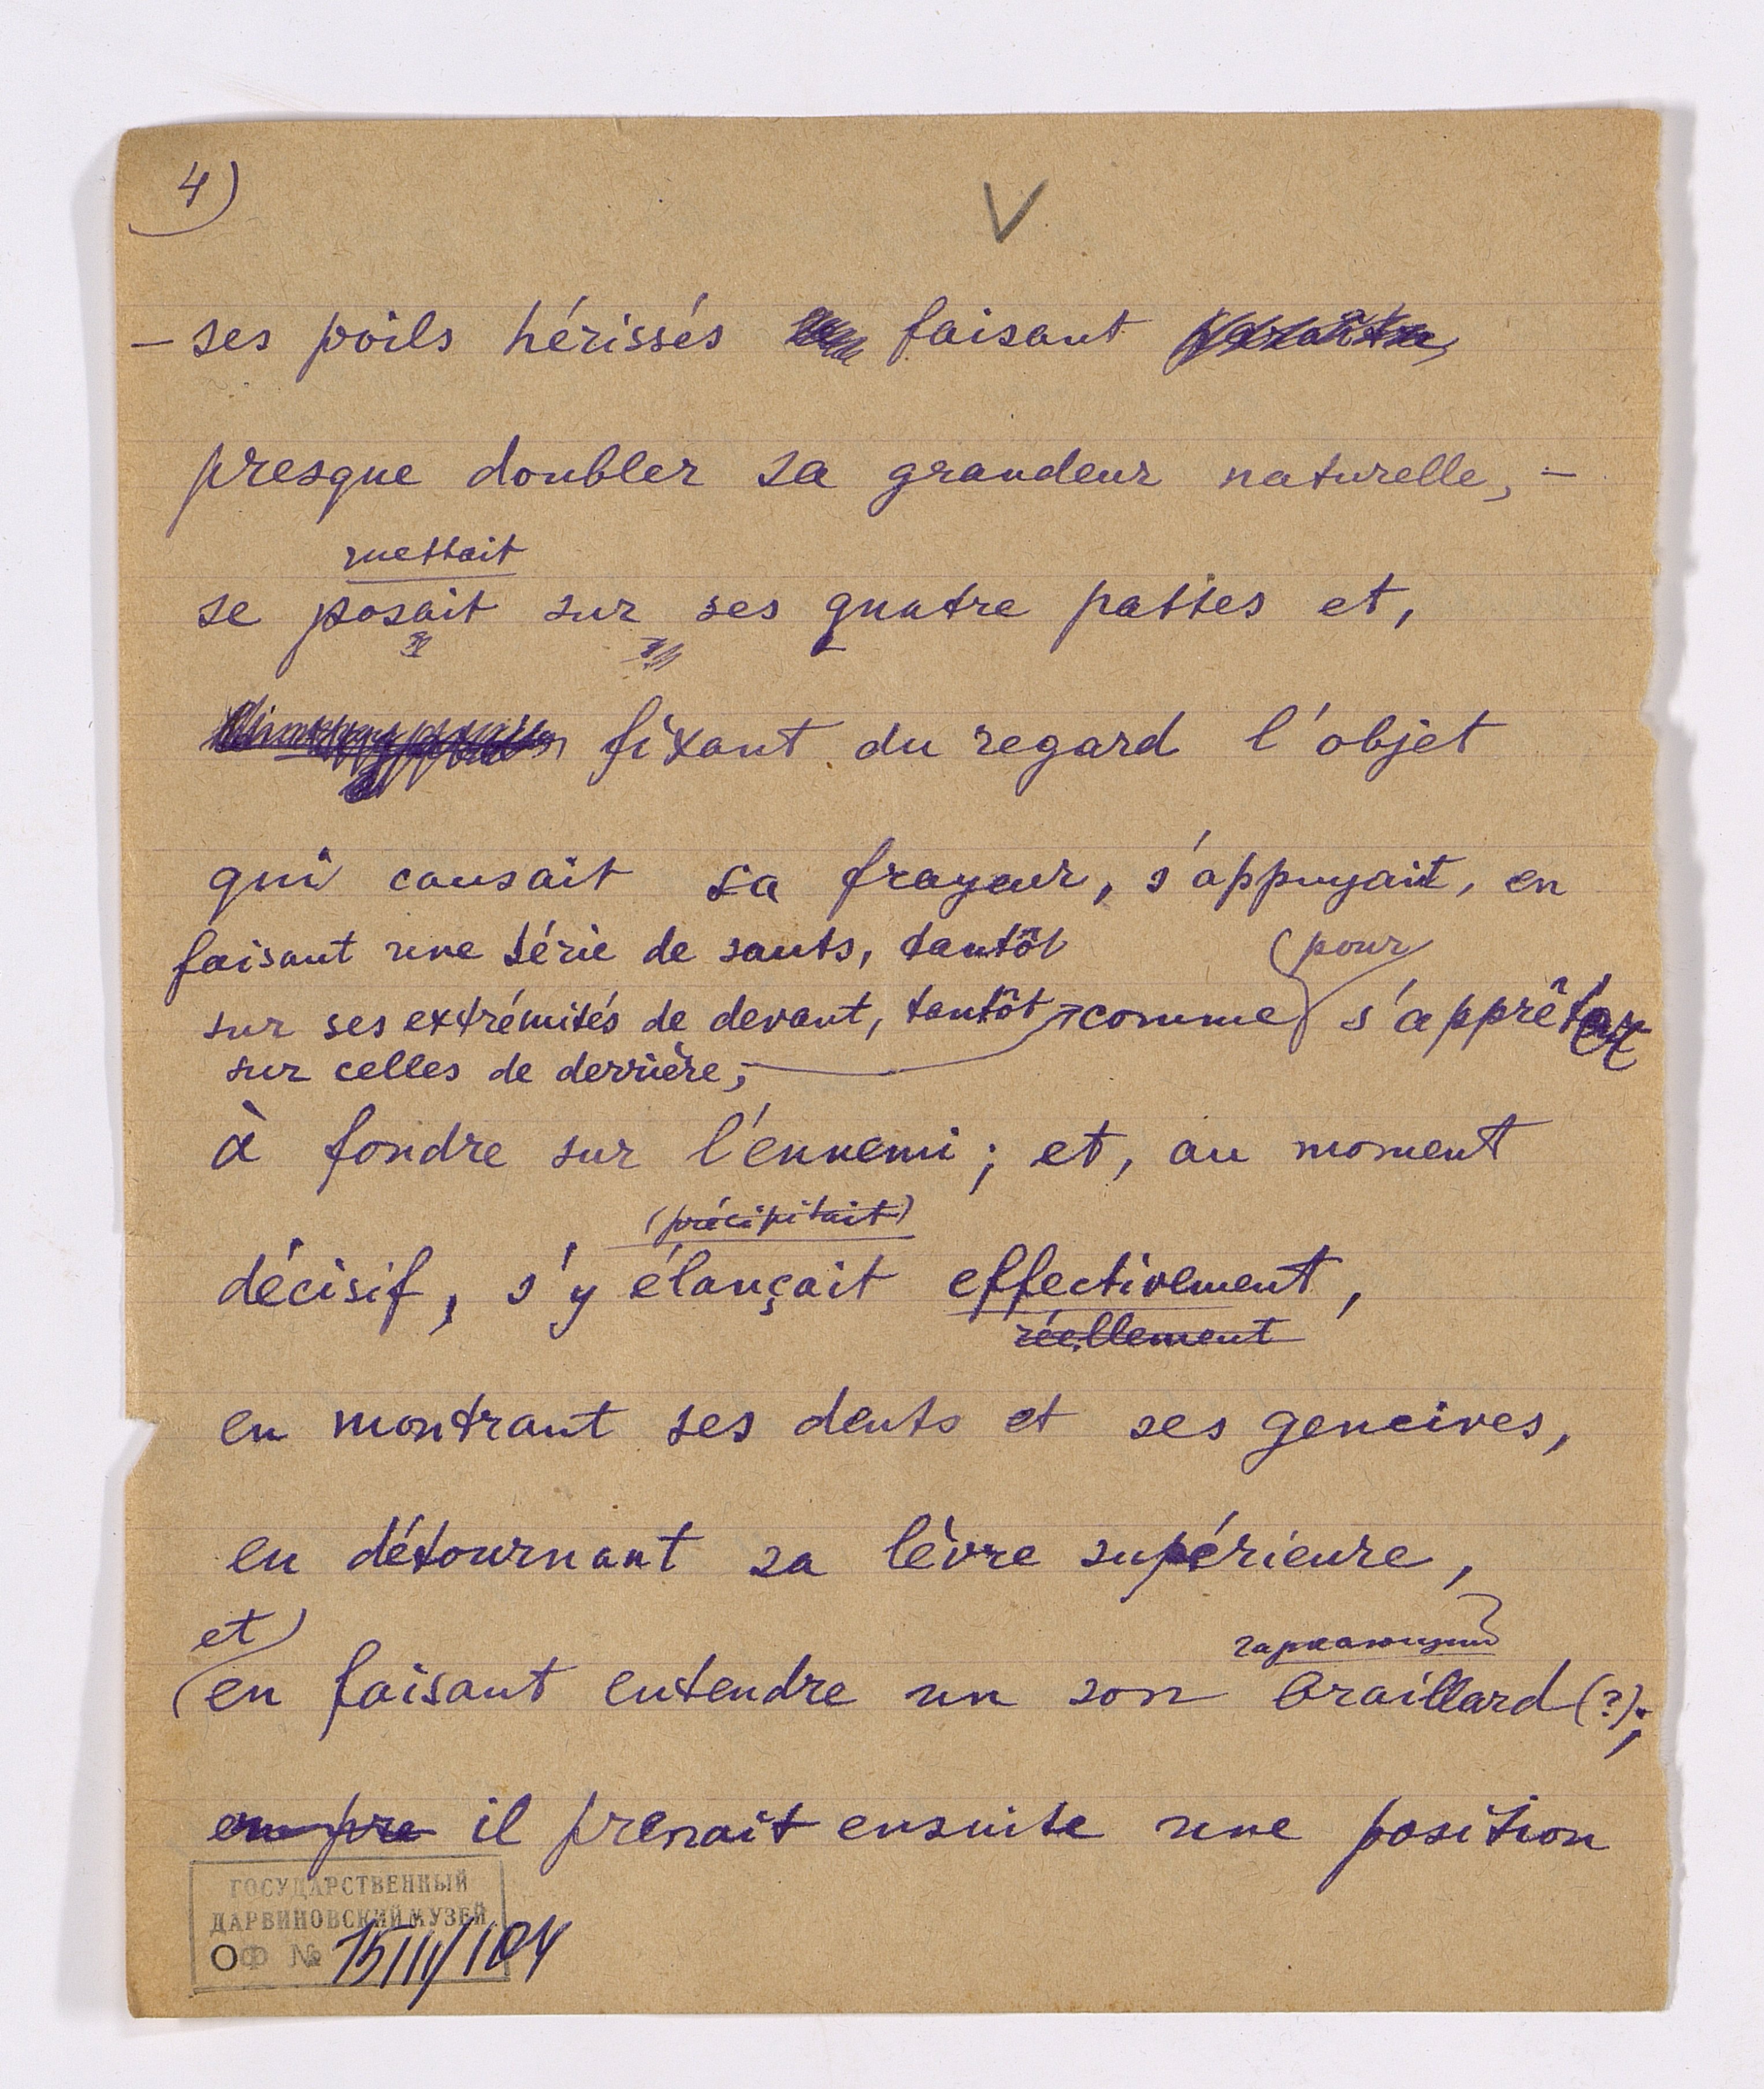 4)
V
— ses poils hérissés faisant paraître
presque doubler sa grandeur naturelle, —
mettait
se posait sur ses quatre pattes et,
fixant du regard l'objet
qui causait sa frayeur, s'appuyait, en
faisant une série de sauts, tantôt
(pour
sur ses extrémités de devant, tantôt comme s'apprêter
sur celles de derrière;
à fondre sur l'ennemi; et, au moment
(précipitait)
décisif, s'y élançait effectivement,
réellement
en montrant ses dents et ses gencives,
en détournant sa lèvre supérieure,
et)
гаркающий
(en faisant entendre un son braillard (?);
en pre il prenait ensuite une position
ГОСУДАРСТВЕННЫЙ
ДАРВИНОВСКИЙ МУЗЕЙ
ОФ №